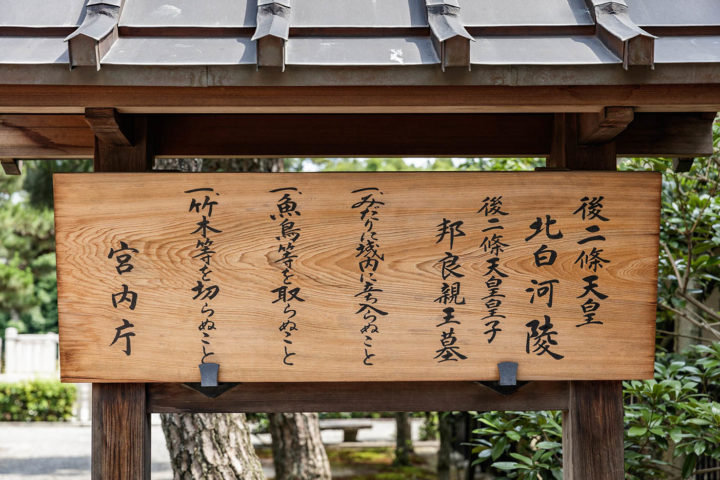 後二條天皇
北白河陵
後二條天皇皇子
邦良親王墓
一、みだりに域内に立入らぬこと
一、魚鳥等を取らぬこと
一、竹木等を切らぬこと
宮内庁